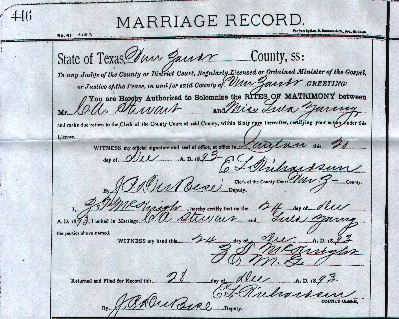 446
MARRIAGE RECORD.
State of Texas, Van Zandt County, ss:
To any Judge of the County or District Court, Regularly Licensed or Ordained Minister of the Gospel,
or Justice of the Peace, in and for said County of Van Zandt GREETING:
You are Hereby Authorized to Solemnize the RITES OF MATRIMONY between
Mr. C A Stewart and Miss Lula Young
and make due return to the Clerk of the County Court of said County, within Sixty days thereafter, certifying your action under this
License.
WITNESS my official signature and seal of office, at office in Canton this
day of Dec A. D. 1893
E L Richardson
Clerk of the County Court Van Z County.
By Deputy.
I, hereby certify that on the 24 day of Dec
A. D. 1893, I united in Marriage C A Stewart and Lula Young
the parties above named.
WITNESS my hand this 24 day of Dec A. D. 1893
M. G.
Returned and Filed for Record this day of Dec A. D. 1893
E L Richardson
COUNTY CLERK.
By Deputy.